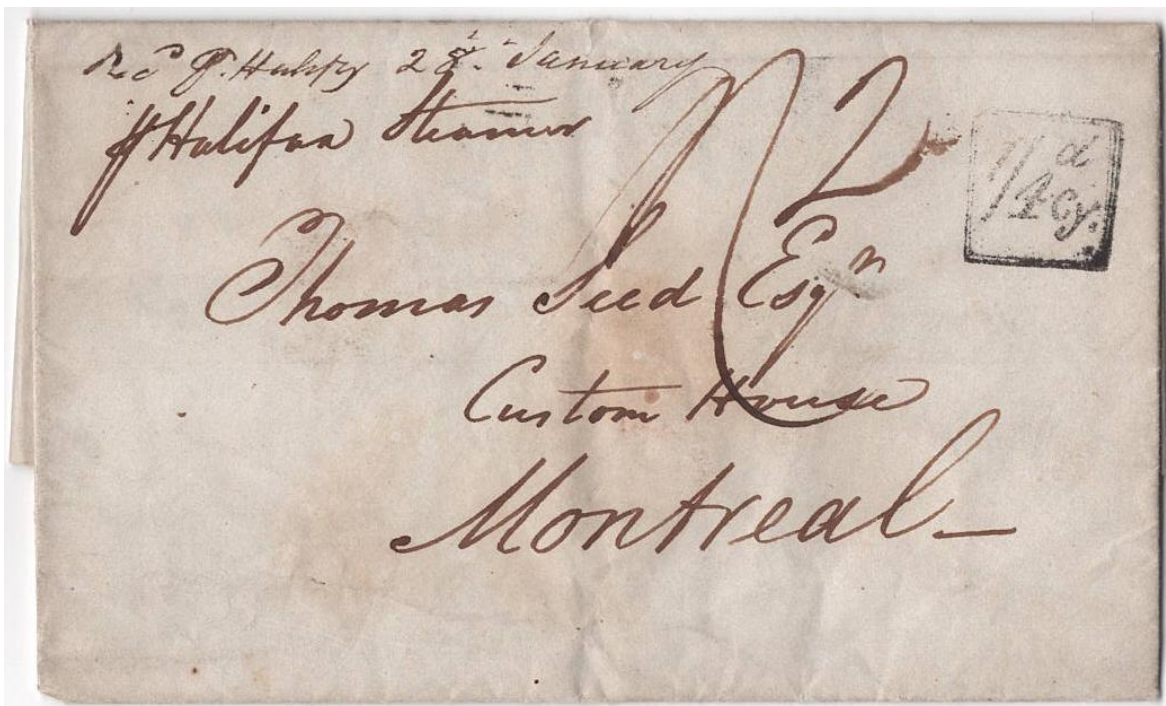 Recd P. Halifx 28th January
p Halifax Steamer
1/2
1/4d Cy.
Thomas Seed Esqr
Custom House
Montreal